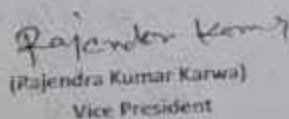 Rajender Kumar
(Rajendra Kumar Karwa)
Vice President